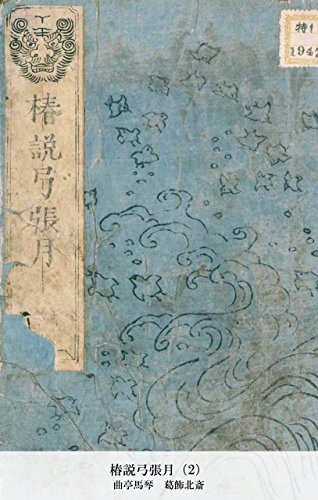 椿説弓張月
特
194
椿説弓張月（2）
曲亭馬琴　葛飾北斎